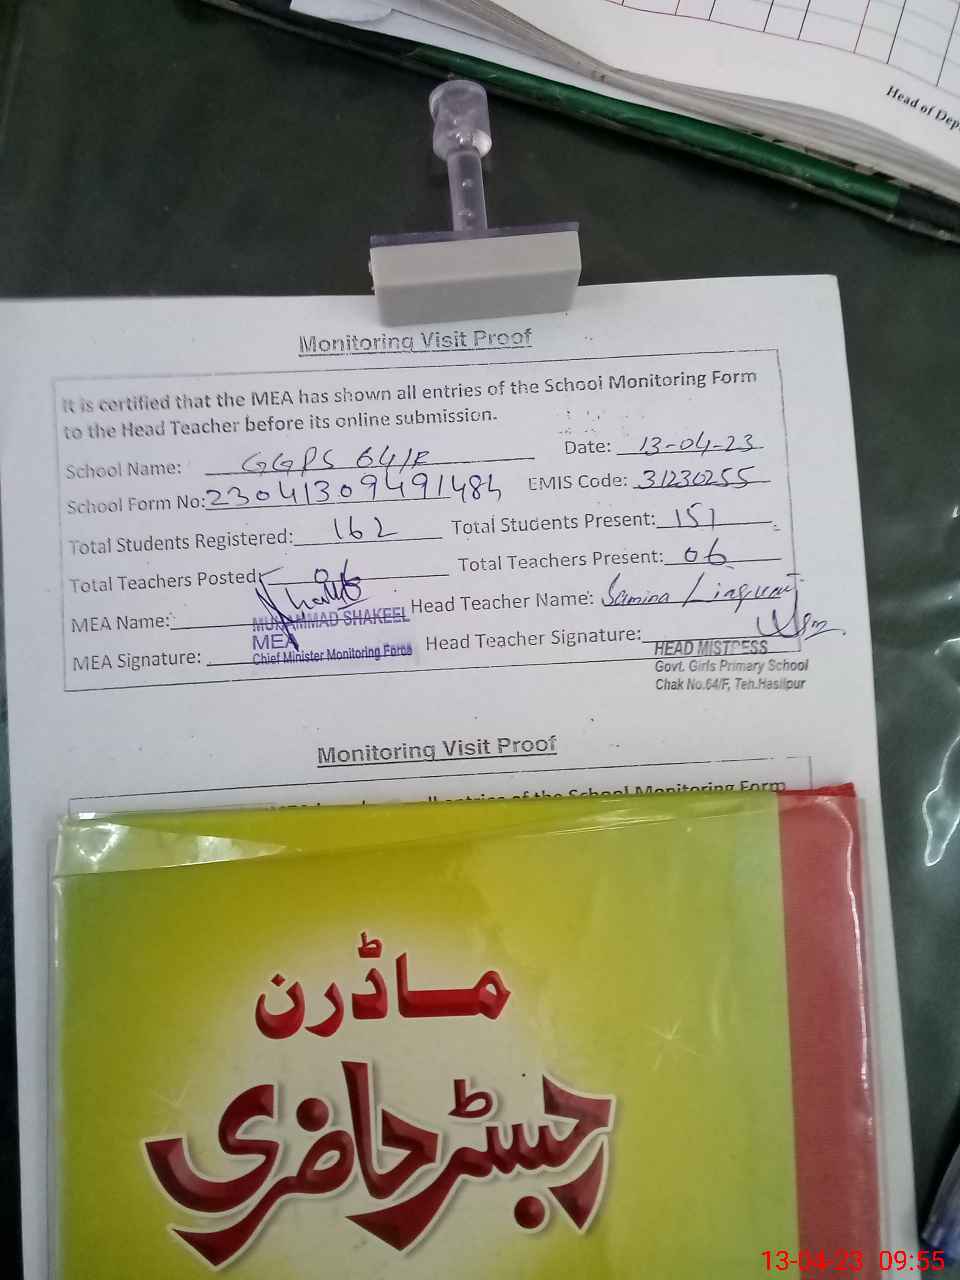 Head of Dep
Monitoring Visit Proof
It is certified that the MEA has shown all entries of the School Monitoring Form
to the Head Teacher before its online submission.
Date: 13-04-23
School Name: GGPS 64/F
School Form No: 23041309491484 EMIS Code: 31230255
Total Students Registered: 162 Total Students Present: 151
Total Teachers Posted: 06 Total Teachers Present: 06
MEA Name: MUHAMMAD SHAKEEL Head Teacher Name: Samina Liaquat
MEA
MEA Signature: Chief Minister Monitoring Force Head Teacher Signature:
HEAD MISTRESS
Govt. Girls Primary School
Chak No.64/F, Teh.Hasilpur
Monitoring Visit Proof
all entries of the School Monitoring Form
ماڈرن
رجسٹر حاضری
13-04-23 09:55